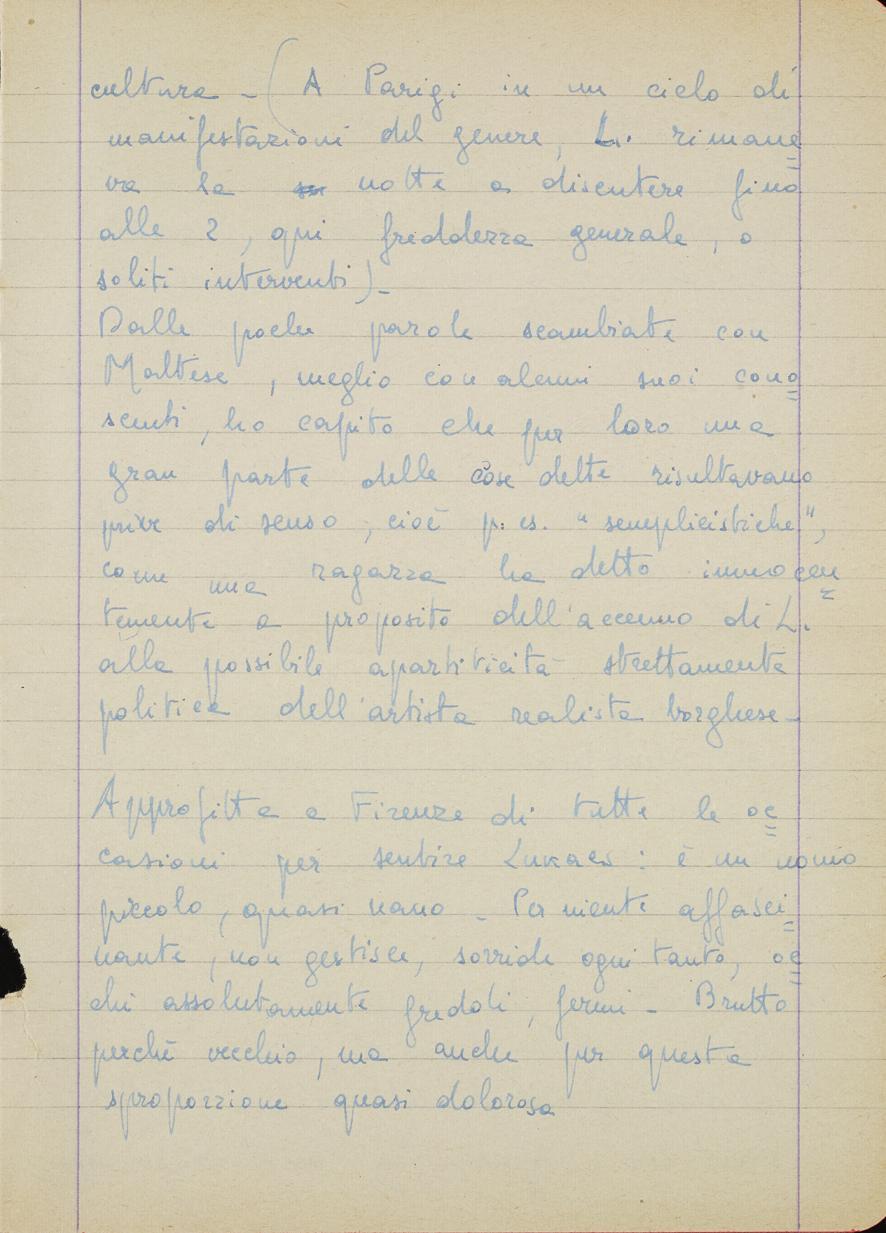 cultura - (A Parigi in un ciclo di
manifestazioni del genere, L. rimane=
va la notte a discutere fino
alle 2, qui freddezza generale, o
soliti interventi)-
Dalle poche parole scambiate con
Maltese, meglio con alcuni suoi cono=
scenti, ho capito che per loro una
gran parte delle cose dette risultavano
prive di senso, cioè p. es. "semplicistiche",
come una ragazza ha detto innocen=
temente a proposito dell'accenno di L.
alla possibile apartiticità strettamente
politica dell'artista realista borghese-
Approfitto a Firenze di tutte le oc=
casioni per sentire Lukacs: è un uomo
piccolo, quasi nano - Per niente affasci=
nante, non gestisce, sorride ogni tanto, oc=
chi assolutamente freddi, fermi - Brutto
perchè vecchio, ma anche per questa
sproporzione quasi dolorosa